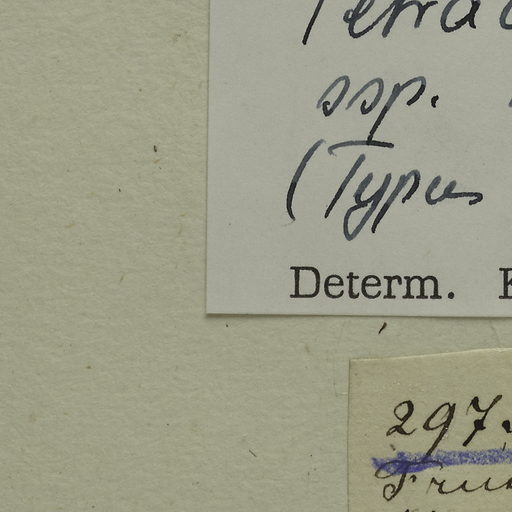 Tetra
ssp.
(Typus
Determ.
297.
Fru